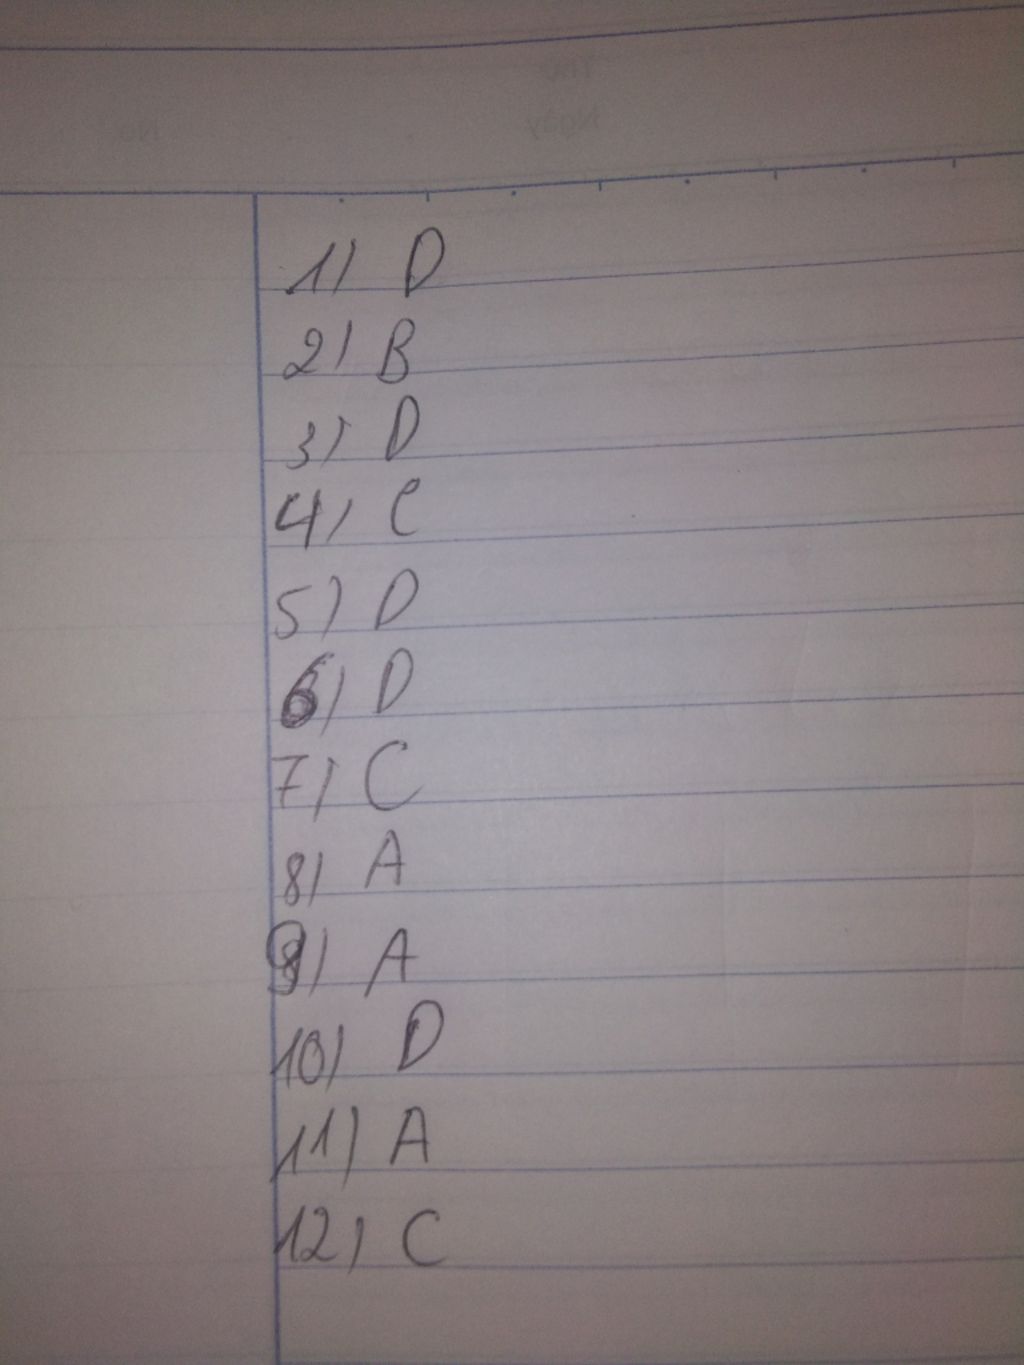 1) D
2) B
3) D
4) C
5) D
6) D
7) C
8) A
9) A
10) D
11) A
12) C